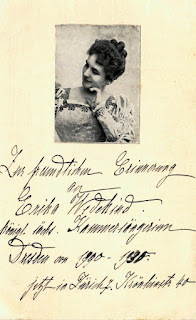 Zur freundlichen Erinnerung
an
Erika Wedekind.
königl. sächs. Kammersängerin
Dresden von
jetzt in Zürich